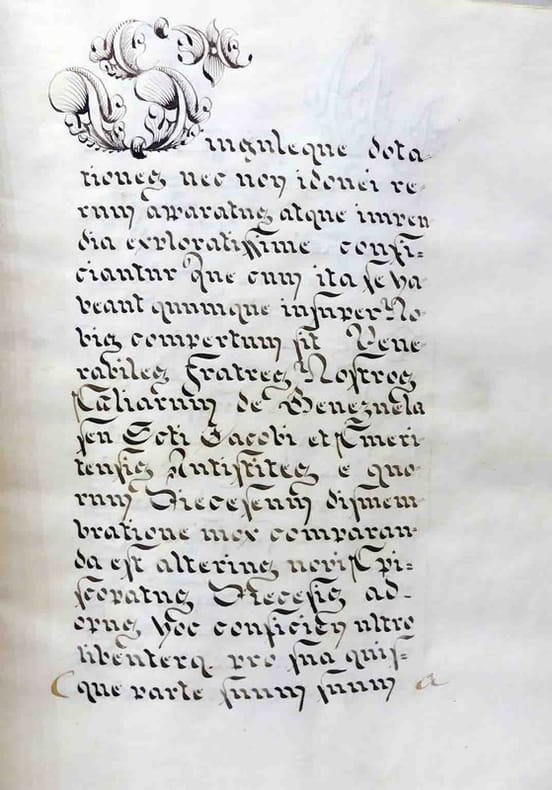 Singuleque dota-
tiones nec non idonei re-
rum apparatus atque impen
dia exploratissime confi=
ciantur Que cum ita se ha
beant quumque insuper No-
bis compertum sit Vene-
rabiles Fratres Nostros
de Venezuela
seu Scti Jacobi et Emeri
tensis Antistites e quo-
rum Diecesenum dismem-
bratione mox comparan-
da est alterius novi Epi=
scopatus Diecesis ad-
opus hoc conficien ultro
libenterq. pro sua quis=
que parte suum suum a